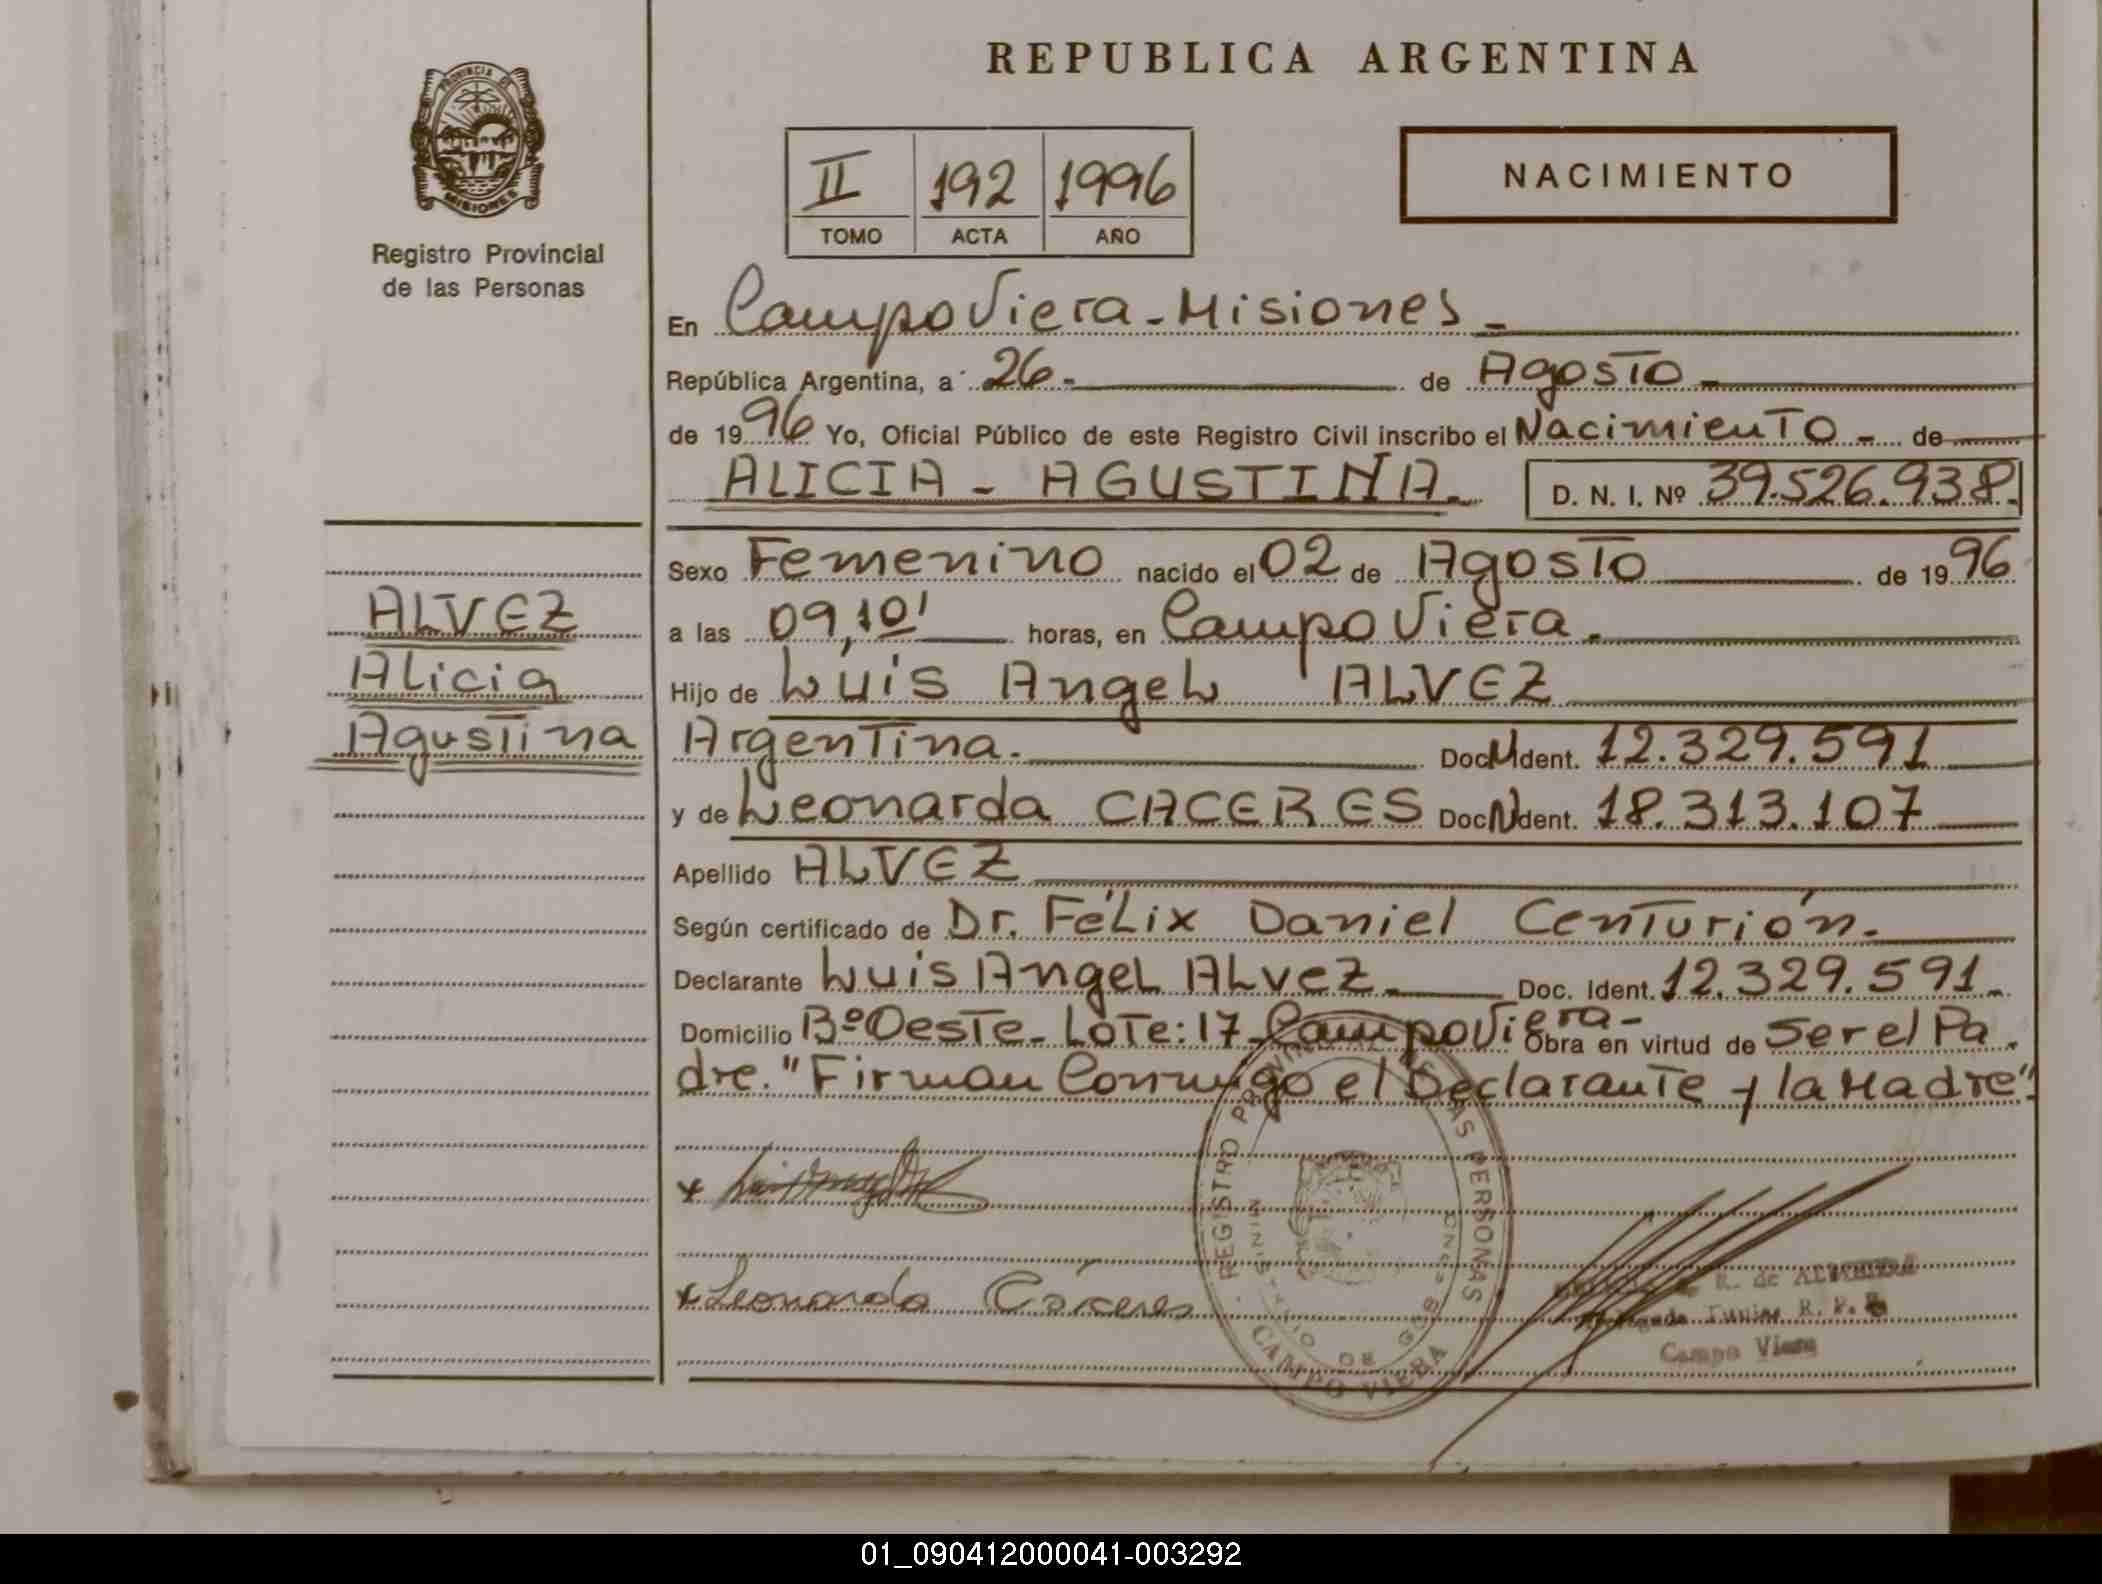 REPUBLICA ARGENTINA
PROVINCIA DE
MISIONES
Registro Provincial
de las Personas
II 192 1996
TOMO ACTA AÑO
NACIMIENTO
En Campo Viera - Misiones -
República Argentina, a 26 - de Agosto -
de 1996 Yo, Oficial Público de este Registro Civil inscribo el Nacimiento - de
ALICIA - AGUSTINA. D. N. I. Nº 39.526.938.
Sexo Femenino nacido el 02 de Agosto de 1996
a las 09,10' horas, en Campo Viera.
Hijo de Luis Angel ALVEZ
Argentina. Doc. Ident. 12.329.591
y de Leonarda CACERES Doc. Ident. 18.313.107
Apellido ALVEZ
Según certificado de Dr. Félix Daniel Centurión.
Declarante Luis Angel ALVEZ - Doc. Ident. 12.329.591.
Domicilio Bº Oeste - Lote: 17 - Campo Viera - Obra en virtud de Ser el Pa
dre. "Firman Conmigo el Declarante y la Madre".
ALVEZ
Alicia
Agustina
x Leonarda Cáceres
REGISTRO PROVINCIAL DE LAS PERSONAS
CAMPO VIERA
R. de
Campo Viera
01_090412000041-003292